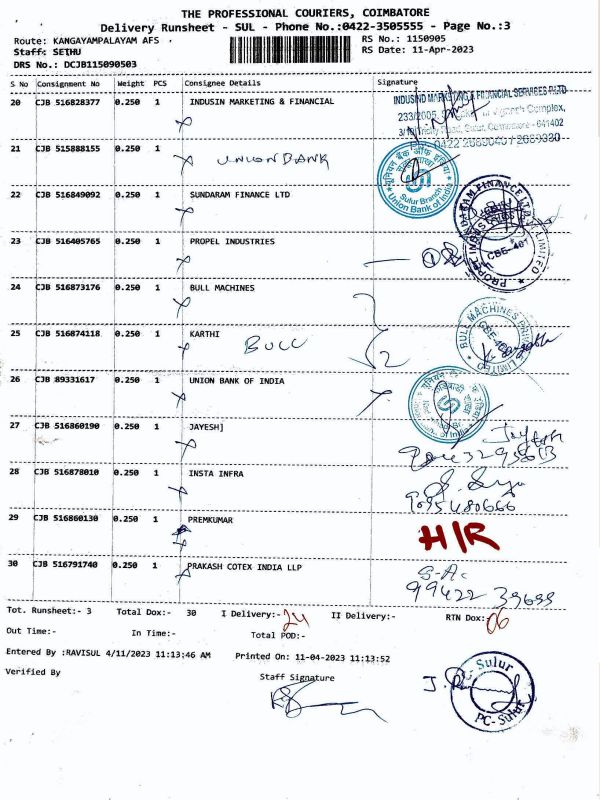 THE PROFESSIONAL COURIERS, COIMBATORE
Delivery Runsheet - SUL - Phone No.:0422-3505555 - Page No.:3
Route: KANGAYAMPALAYAM AFS RS No.: 1150905
Staff: SETHU RS Date: 11-Apr-2023
DRS No.: DCJB115090503
S No Consignment No Weight PCS Consignee Details Signature
20 CJB 516828377 0.250 1 INDUSIN MARKETING & FINANCIAL
INDUSIND MARKETING & FINANCIAL SERVICES
Complex,
Sulur, Coimbatore - 641402
21 CJB 515888155 0.250 1 UNION BANK
यूनियन बैंक ऑफ इंडिया
Sulur Branch
Union Bank of India
22 CJB 516849092 0.250 1 SUNDARAM FINANCE LTD
SUNDARAM FINANCE LTD
23 CJB 516405765 0.250 1 PROPEL INDUSTRIES
PROPEL INDUSTRIES LIMITED
CBE-407
24 CJB 516873176 0.250 1 BULL MACHINES
BULL MACHINES PRIVATE LIMITED
25 CJB 516874118 0.250 1 KARTHI
BULL
26 CJB 89331617 0.250 1 UNION BANK OF INDIA
27 CJB 516860190 0.250 1 JAYESH]
Jayesh
28 CJB 516878010 0.250 1 INSTA INFRA
29 CJB 516860130 0.250 1 PREMKUMAR
H/R
30 CJB 516791740 0.250 1 PRAKASH COTEX INDIA LLP
Tot. Runsheet:- 3 Total Dox:- 30 I Delivery:- 24 II Delivery:- RTN Dox:- 06
Out Time:- In Time:- Total POD:-
Entered By :RAVISUL 4/11/2023 11:13:46 AM Printed On: 11-04-2023 11:13:52
Verified By Staff Signature
Sulur
PC-Sulur